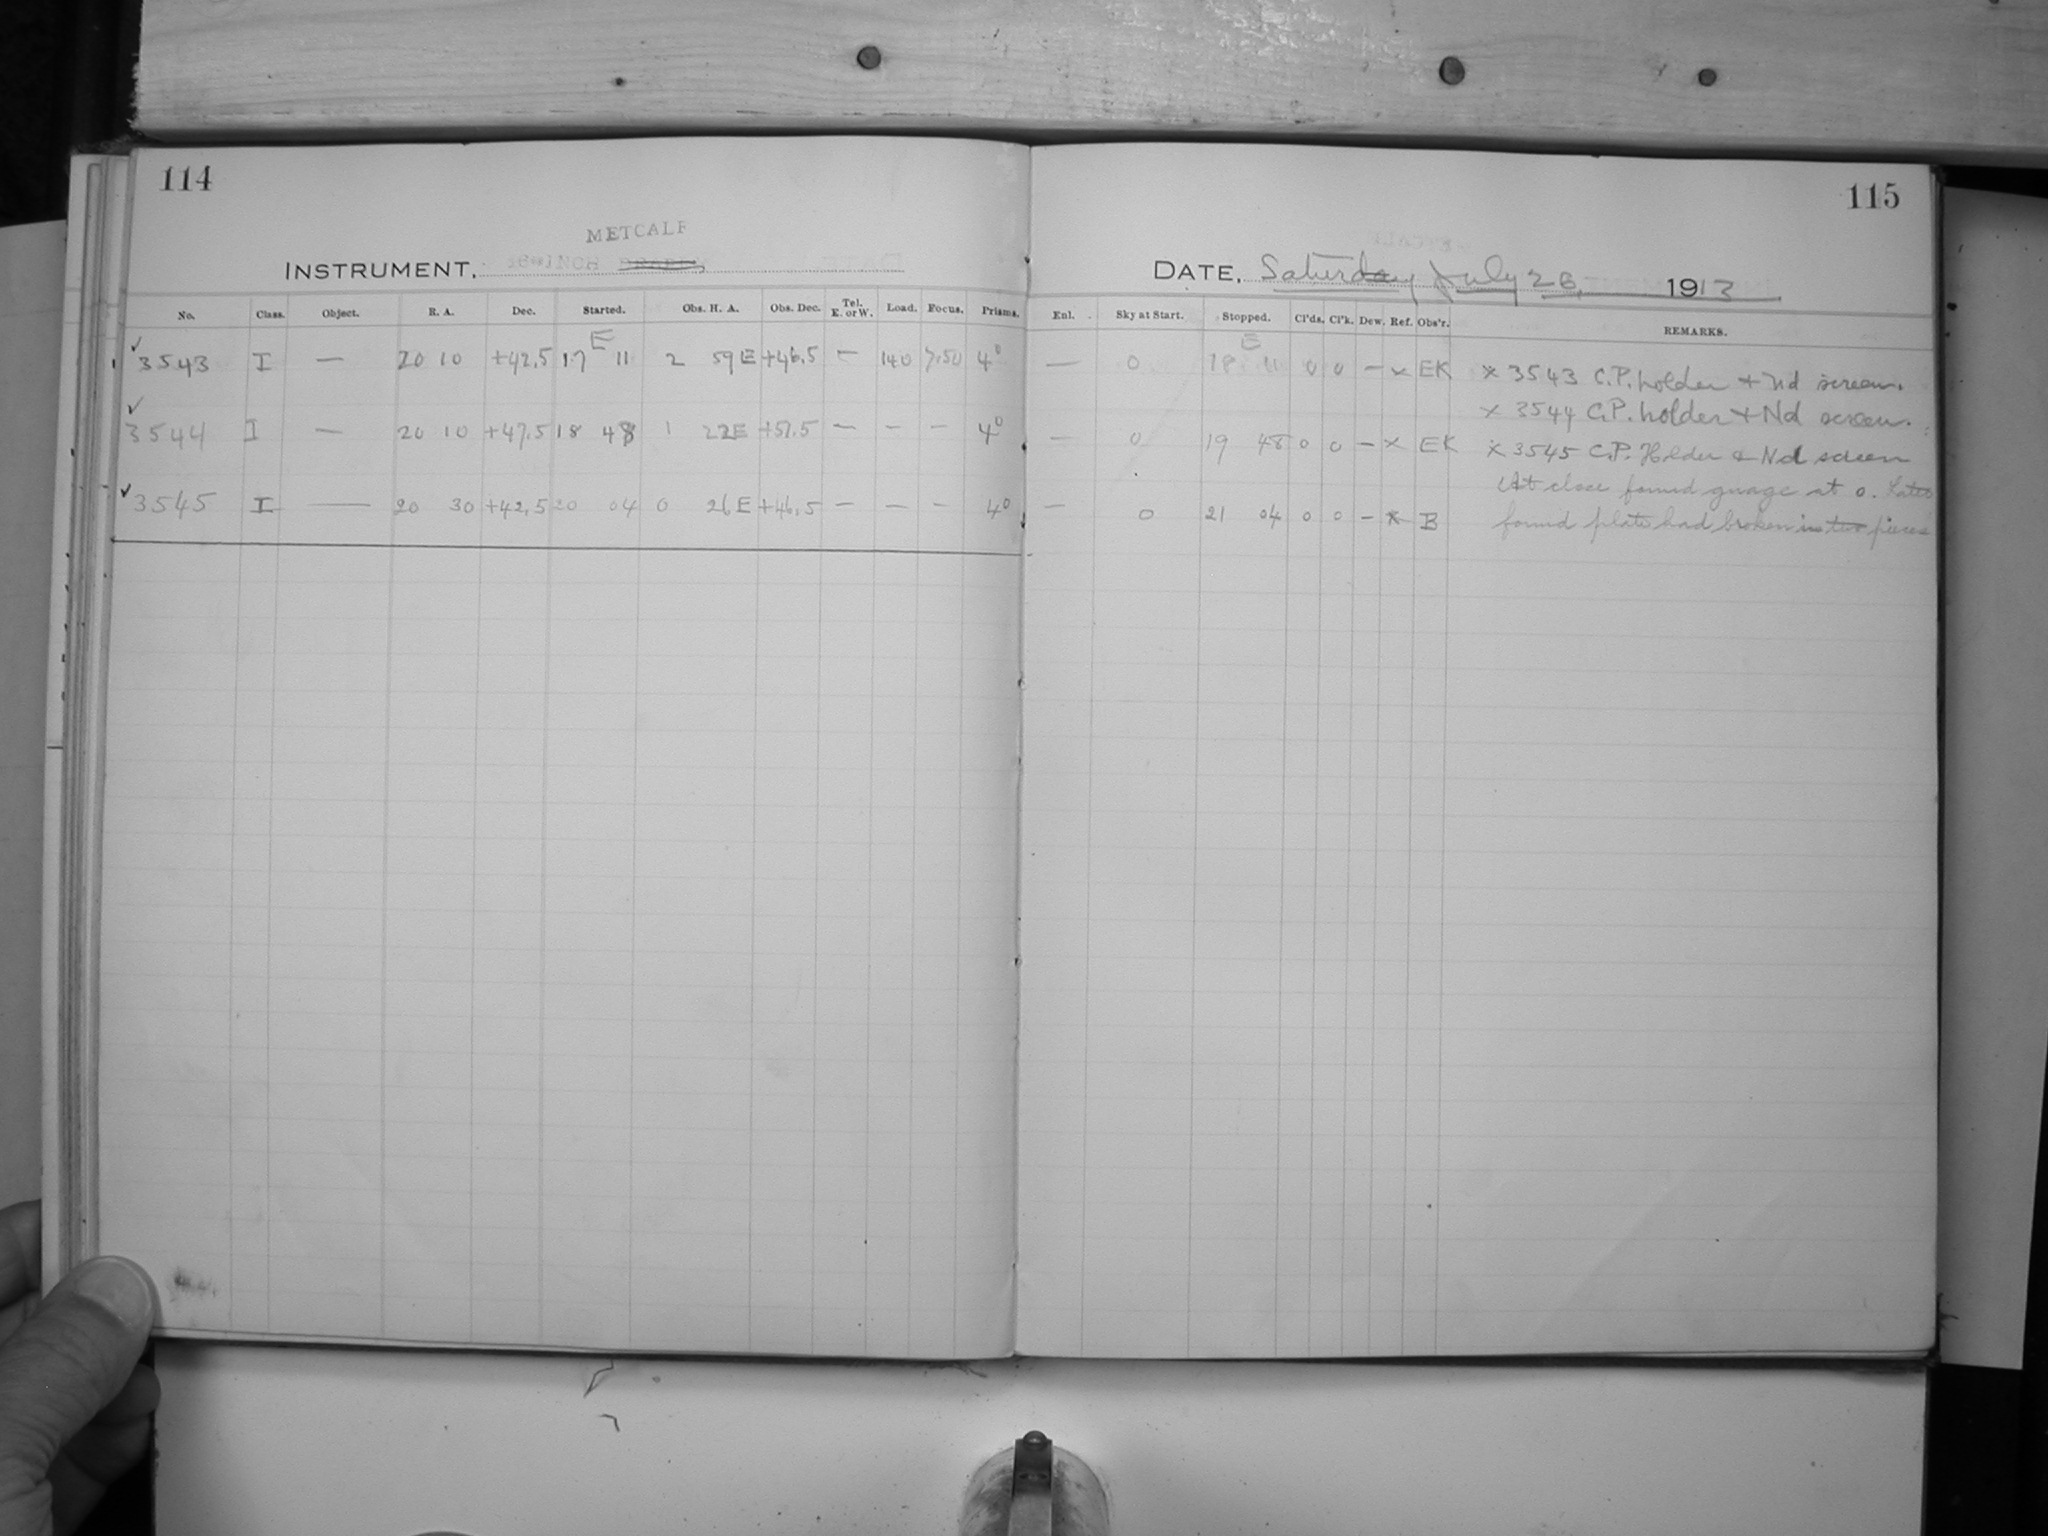 114
METCALF
INSTRUMENT, 16-INCH DRAPER
No. Class. Object. R. A. Dec. Started. Obs. H. A. Obs. Dec. Tel. E. or W. Load. Focus. Prisms.
E
✓ 3543 I — 20 10 +42.5 17 11 2 59 E +46.5 — 140 7.50 4°
✓ 3544 I — 20 10 +47.5 18 48 1 22 E +51.5 — — — 4°
✓ 3545 I — 20 30 +42.5 20 04 0 26 E +46.5 — — — 4°
115
DATE, Saturday July 26, 1913
Enl. Sky at Start. Stopped. Cl'ds. Cl'k. Dew. Ref. Obs'r. REMARKS.
E
— 0 18 11 0 0 — x EK x 3543 C.P. holder + Nd screen.
x 3544 C.P. holder + Nd screen.
— 0 19 48 0 0 — x EK x 3545 C.P. Holder & Nd screen
At close found guage at 0. Later
— 0 21 04 0 0 — x B found plate had broken in two pieces